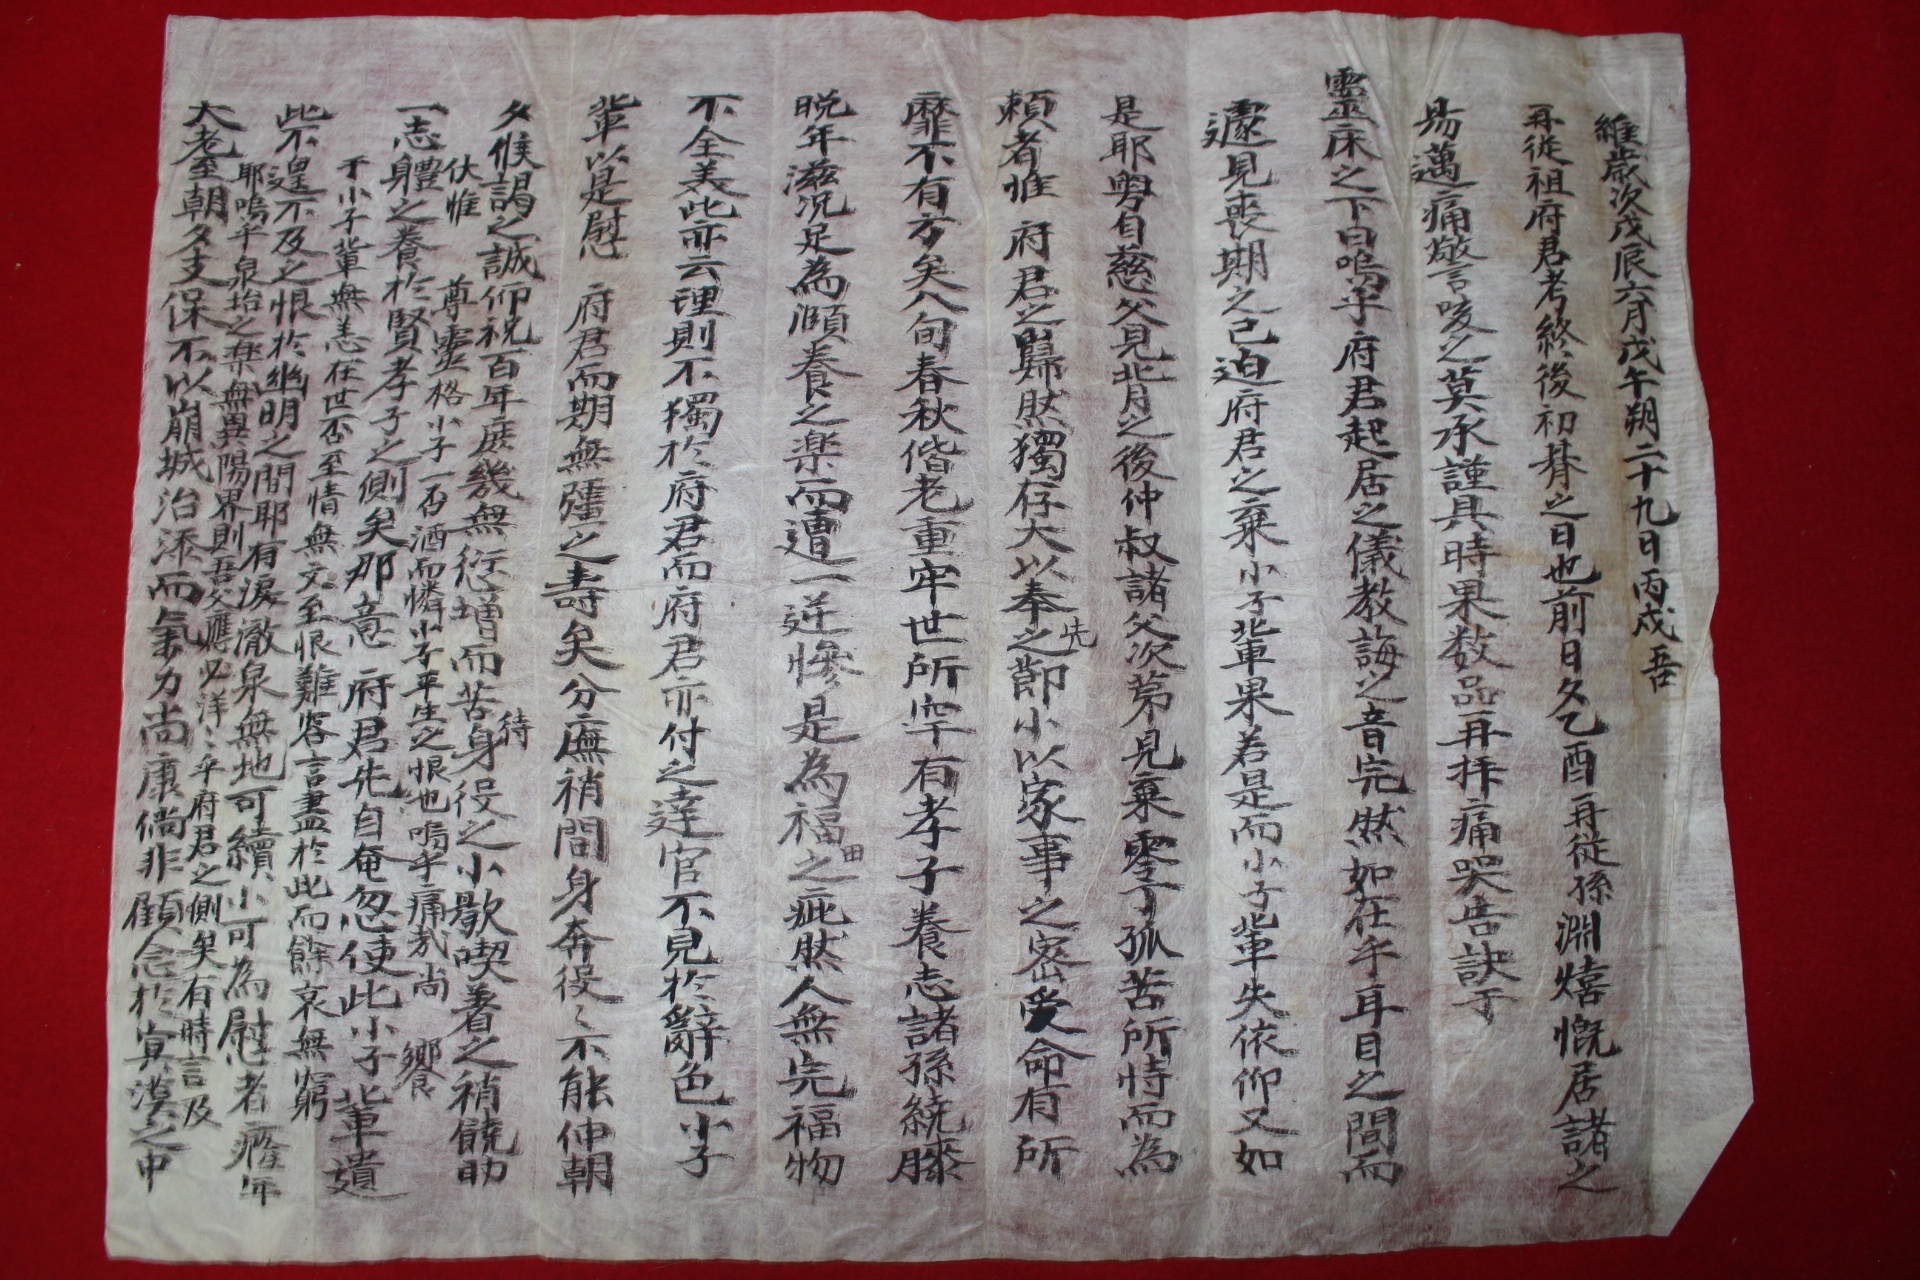 維歲次戊辰六月戊午朔二十九日丙戌吾
再從祖府君考終後初朞之日也前日夕乙酉再從孫淵熺慨居諸之
易邁痛警言咳之莫承謹具時果数品再拝痛哭告訣于
靈床之下曰嗚乎府君起居之儀教誨之音完然如在乎耳目之間而
遽見喪期之已迫府君之棄小子輩果若是而小子輩失依仰又如
是耶粤自慈父見背之後仲叔諸父次第見棄零丁孤苦所恃而為
頼者惟 府君之巋然獨存大以奉先之節小以家事之密受命有所
靡不有方矣八旬春秋偕老重牢世所罕有孝子養志諸孫繞膝
晩年滋況足為頤養之楽而遭一逆慘是為福田之疵然人無完福物
不全美此亦云理則不獨於府君而府君亦付之達官不見於辭色小子
輩以是慰 府君而期無彊之壽矣分廡稍間身奔役〻不能仲朝
夕候謁之誠仰祝百年庶幾無愆增而苦待身役之小歇喫着之稍饒助
一志體之養於賢孝子之側矣那意 府君先自奄忽使此小子輩遺
此不遑不及之恨於幽明之間耶有淚澈泉無地可續小可為慰者 癃年
大老至朝夕支保不以崩城治添而氣力尚康倘非顧念於冥漠之中
耶嗚乎泉坮之楽無異陽界則吾父應必洋〻乎府君之側矣有時言及
于小子輩無恙在世否至情無文至恨難容言盡於此而餘哀無窮
伏惟 尊靈格小子一否酒而憐小子平生之恨也嗚乎痛哉尚 饗